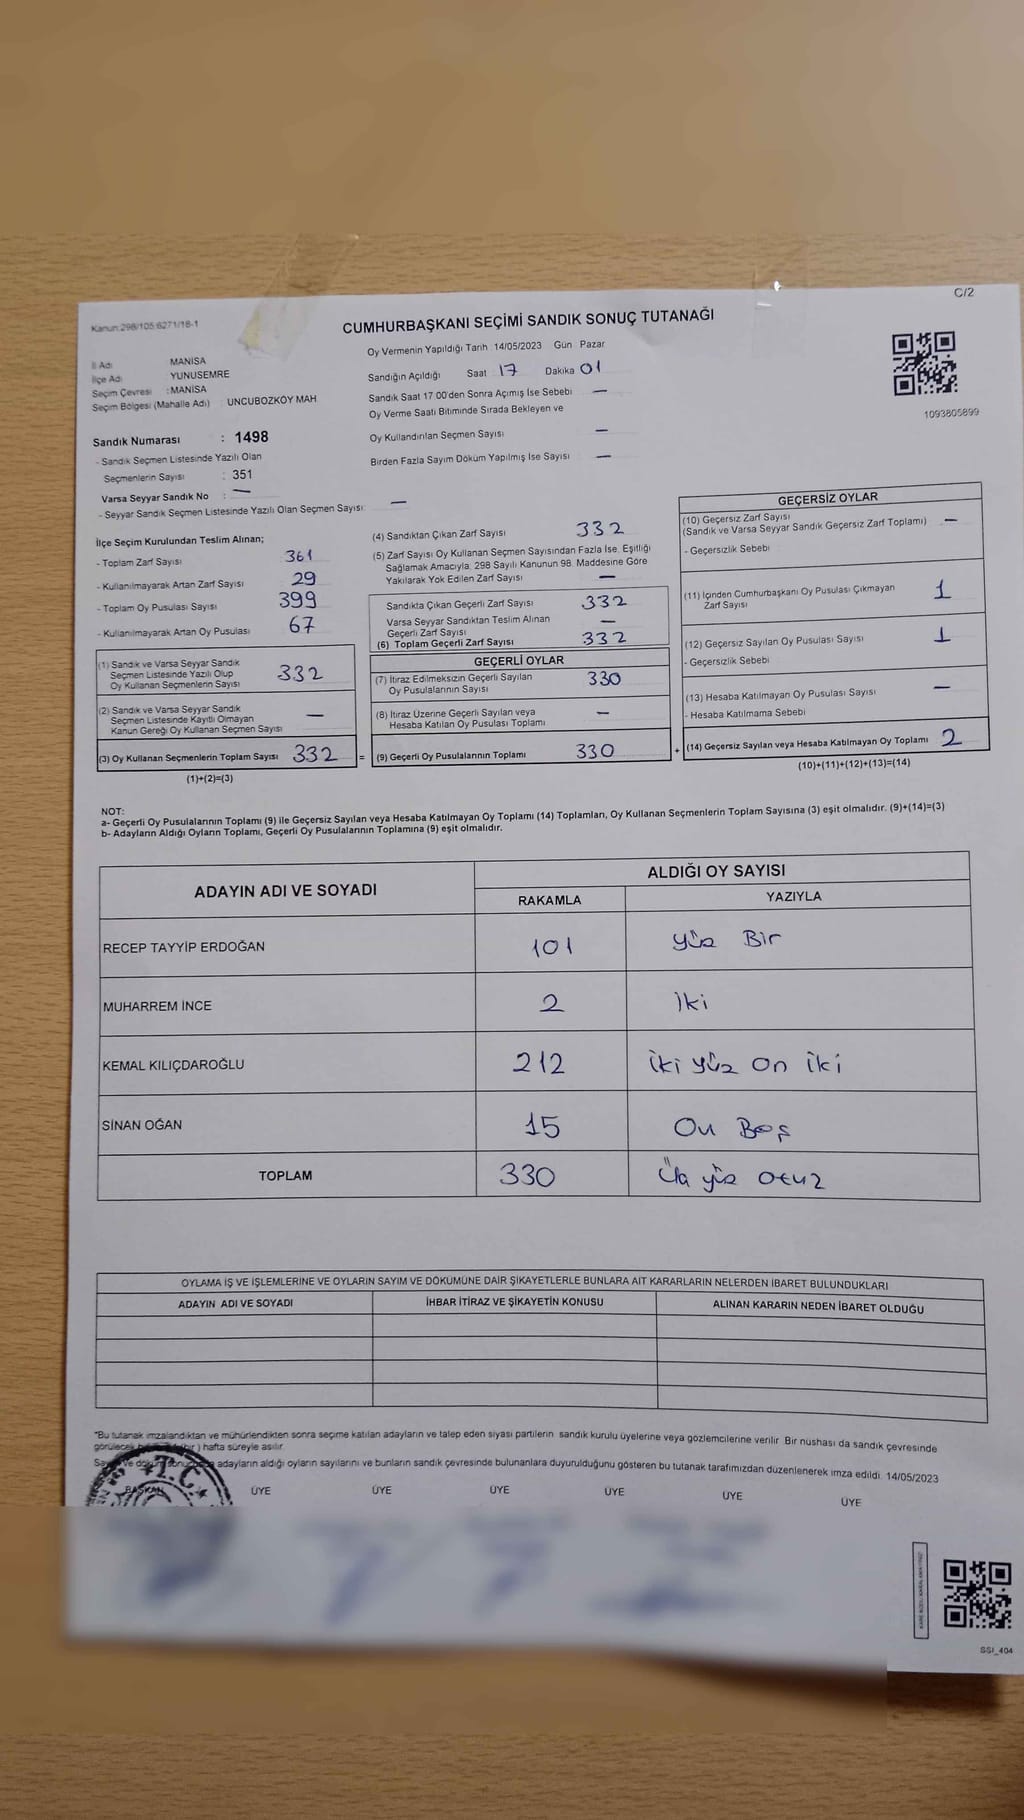 C/2
Kanun:298/105;6271/18-1
CUMHURBAŞKANI SEÇİMİ SANDIK SONUÇ TUTANAĞI
İl Adı MANİSA
İlçe Adı YUNUSEMRE
Seçim Çevresi :MANİSA
Seçim Bölgesi (Mahalle Adı) UNCUBOZKÖY MAH
Oy Vermenin Yapıldığı Tarih 14/05/2023 Gün Pazar
Sandığın Açıldığı Saat 17 Dakika 01
Sandık Saat 17 00'den Sonra Açımış İse Sebebi —
Oy Verme Saati Bitiminde Sırada Bekleyen ve
Oy Kullandırılan Seçmen Sayısı —
Birden Fazla Sayım Döküm Yapılmış İse Sayısı —
1093805899
Sandık Numarası : 1498
- Sandık Seçmen Listesinde Yazılı Olan
Seçmenlerin Sayısı : 351
Varsa Seyyar Sandık No : —
- Seyyar Sandık Seçmen Listesinde Yazılı Olan Seçmen Sayısı: —
İlçe Seçim Kurulundan Teslim Alınan;
- Toplam Zarf Sayısı 361
- Kullanılmayarak Artan Zarf Sayısı 29
- Toplam Oy Pusulası Sayısı 399
- Kullanılmayarak Artan Oy Pusulası 67
(1) Sandık ve Varsa Seyyar Sandık
Seçmen Listesinde Yazılı Olup
Oy Kullanan Seçmenlerin Sayısı 332
(2) Sandık ve Varsa Seyyar Sandık
Seçmen Listesinde Kayıtlı Olmayan
Kanun Gereği Oy Kullanan Seçmen Sayısı —
(3) Oy Kullanan Seçmenlerin Toplam Sayısı 332 =
(1)+(2)=(3)
(4) Sandıktan Çıkan Zarf Sayısı 332
(5) Zarf Sayısı Oy Kullanan Seçmen Sayısından Fazla İse, Eşitliği
Sağlamak Amacıyla, 298 Sayılı Kanunun 98. Maddesine Göre
Yakılarak Yok Edilen Zarf Sayısı —
Sandıkta Çıkan Geçerli Zarf Sayısı 332
Varsa Seyyar Sandıktan Teslim Alınan
Geçerli Zarf Sayısı —
(6) Toplam Geçerli Zarf Sayısı 332
GEÇERLİ OYLAR
(7) İtiraz Edilmeksizin Geçerli Sayılan
Oy Pusulalarının Sayısı 330
(8) İtiraz Üzerine Geçerli Sayılan veya
Hesaba Katılan Oy Pusulası Toplamı —
(9) Geçerli Oy Pusulalarının Toplamı 330 +
GEÇERSİZ OYLAR
(10) Geçersiz Zarf Sayısı
(Sandık ve Varsa Seyyar Sandık Geçersiz Zarf Toplamı) —
- Geçersizlik Sebebi
(11) İçinden Cumhurbaşkanı Oy Pusulası Çıkmayan
Zarf Sayısı 1
(12) Geçersiz Sayılan Oy Pusulası Sayısı 1
- Geçersizlik Sebebi
(13) Hesaba Katılmayan Oy Pusulası Sayısı —
- Hesaba Katılmama Sebebi
(14) Geçersiz Sayılan veya Hesaba Katılmayan Oy Toplamı 2
(10)+(11)+(12)+(13)=(14)
NOT:
a- Geçerli Oy Pusulalarının Toplamı (9) ile Geçersiz Sayılan veya Hesaba Katılmayan Oy Toplamı (14) Toplamları, Oy Kullanan Seçmenlerin Toplam Sayısına (3) eşit olmalıdır. (9)+(14)=(3)
b- Adayların Aldığı Oyların Toplamı, Geçerli Oy Pusulalarının Toplamına (9) eşit olmalıdır.
ADAYIN ADI VE SOYADI ALDIĞI OY SAYISI
RAKAMLA YAZIYLA
RECEP TAYYİP ERDOĞAN 101 Yüz Bir
MUHARREM İNCE 2 İki
KEMAL KILIÇDAROĞLU 212 İki yüz on iki
SİNAN OĞAN 15 On Beş
TOPLAM 330 Üç yüz otuz
OYLAMA İŞ VE İŞLEMLERİNE VE OYLARIN SAYIM VE DÖKÜMÜNE DAİR ŞİKAYETLERLE BUNLARA AİT KARARLARIN NELERDEN İBARET BULUNDUKLARI
ADAYIN ADI VE SOYADI İHBAR İTİRAZ VE ŞİKAYETİN KONUSU ALINAN KARARIN NEDEN İBARET OLDUĞU
"Bu tutanak imzalandıktan ve mühürlendikten sonra seçime katılan adayların ve talep eden siyasi partilerin sandık kurulu üyelerine veya gözlemcilerine verilir Bir nüshası da sandık çevresinde
görülecek ) hafta süreyle asılır.
ve döküm adayların aldığı oyların sayılarını ve bunların sandık çevresinde bulunanlara duyurulduğunu gösteren bu tutanak tarafımızdan düzenlenerek imza edildi. 14/05/2023
T.C.
BAŞKAN ÜYE ÜYE ÜYE ÜYE ÜYE ÜYE
SSI_404